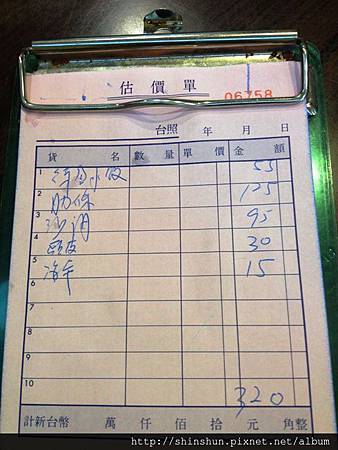 估價單
06758
台照 年 月 日
貨 名 數 量 單 價 金 額
1 55
2 肋條 125
3 95
4 頭皮 30
5 海平 15
6
7
8
9
10 320
計新台幣 萬 仟 佰 拾 元 角整
http://shinshun.pixnet.net/album